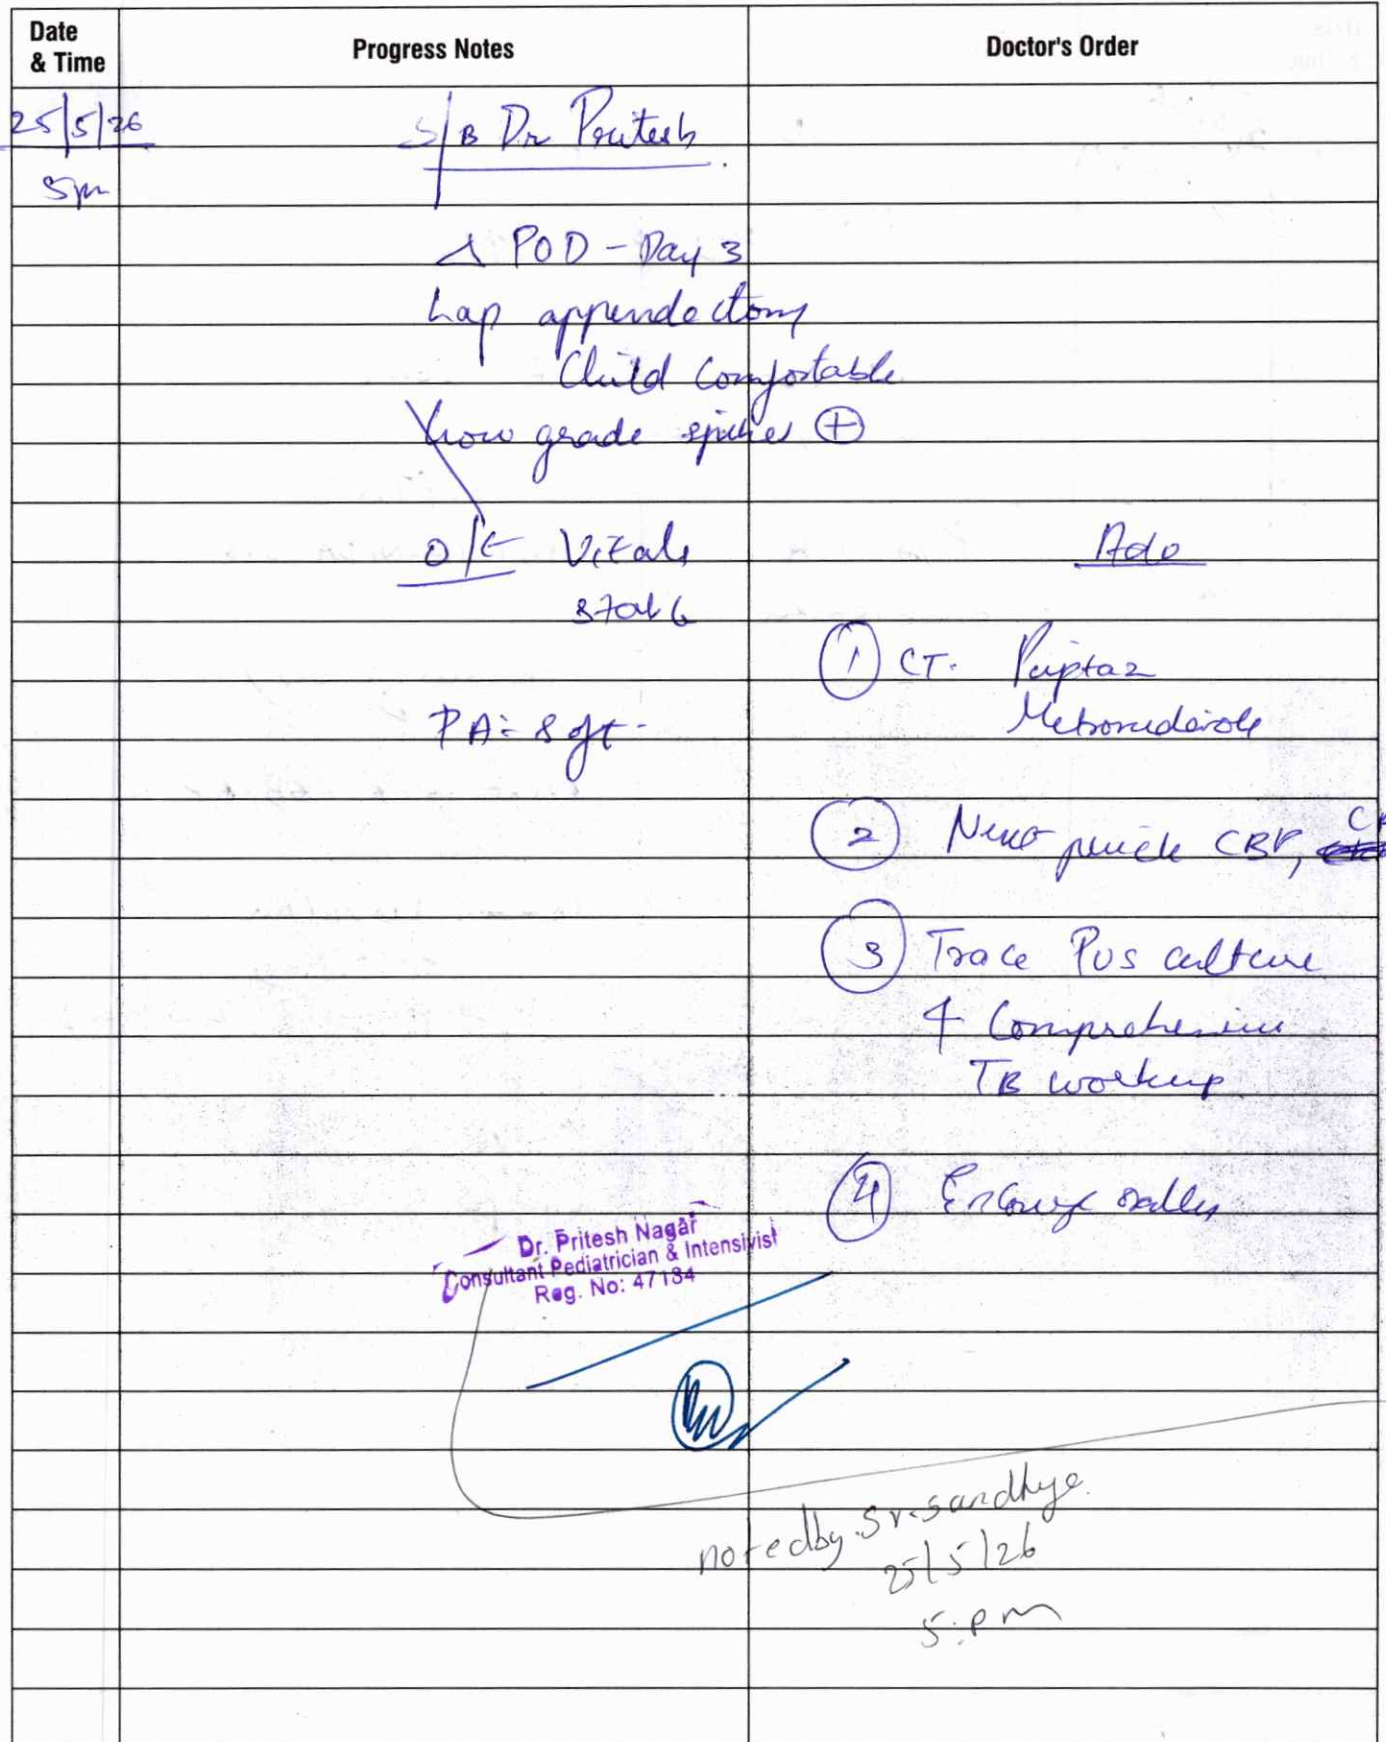 Date & Time
Progress Notes
Doctor's Order
25/5/26
5pm
S/B Dr Pritesh
Δ POD - Day 3
Lap appendectomy
Child comfortable
Low grade spikes ⊕
O/E Vitals
stable
Adv
① CT. Piptaz
Metronidazole
PA: Soft
② Next prick CBP,
③ Trace Pus culture
& Comprehensive
TB workup
④ Encourage orally
Dr. Pritesh Nagar
Consultant Pediatrician & Intensivist
Reg. No: 47134
noted by Sr. Sandhya
25/5/26
5:pm